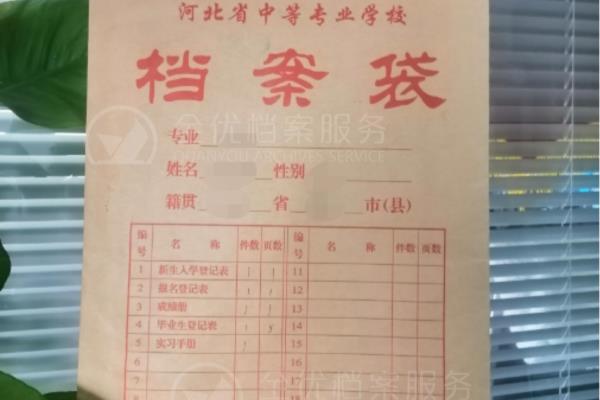 河北省中等专业学校
档案袋
全优档案服务
QUANYOU ARCHIVES SERVICE
专业
姓名 性别
籍贯 省 市(县)
编号 名 称 件数 页数 编号 名 称 件数 页数
1 新生入学登记表 1 1 11
2 报名登记表 1 1 12
3 成绩册 1 1 13
4 毕业生登记表 1 5 14
5 实习手册 1 15
6 16
7 17
8 18
全优档案服务